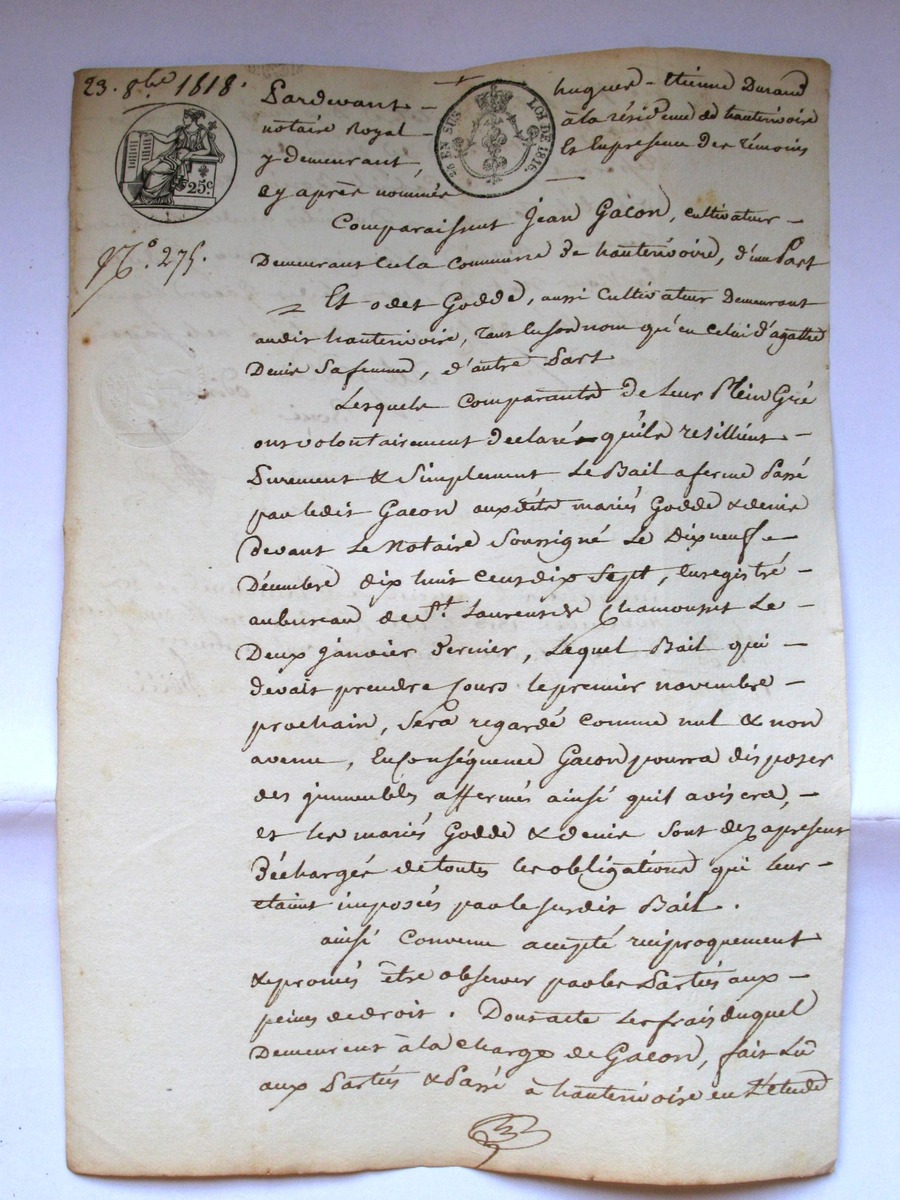 23. 8bre 1818.
Pardevant - hugues - Etienne Durand
notaire Royal - à la résidence de hauterivoire
y demeurant Et Enpresence des témoins
cy après nommés
25c.
EN SUS LOI DE 1816.
N°. 275.
Comparaissent Jean Gacon, cultivateur -
Demeurant en la Commune de hauterivoire, d'une Part
Et odet Godde, aussi Cultivateur Demeurant
audit hauterivoire, tant en son nom qu'en celui d'agathe
Denis Safemme, d'autre Part
Lesquels Comparants de Leur Plein Gré
ont volontairement declaré qu'ils resillient -
Purement & Simplement Le Bail a ferme Passé
par ledit Gacon auxdits mariés Godde & denis
devant Le Notaire Soussigné Le Dixneuf
Décembre dix huit cent dix Sept, Enregistré -
au bureau de St. Laurent de Chamousset Le -
Deux janvier dernier, Lequel Bail qui -
devait prendre Cours le premier novembre -
prochain, Sera regardé comme nul & non
avenu, Enconséquence Gacon pourra disposer
des immeubles affermés ainsi qu'il avisera, -
et les mariés Godde & denis Sont dez apresent
Déchargés de toutes les obligations qui leur -
etaient imposées par le Susdit Bail.
ainsi Convenu accepté réciproquement
& promis être observer par les Parties aux -
peines de droit. Dont acte Les frais duquel
Demeurent à la Charge de Gacon, fait Lû
aux Parties & Passé à hauterivoire en L'étude